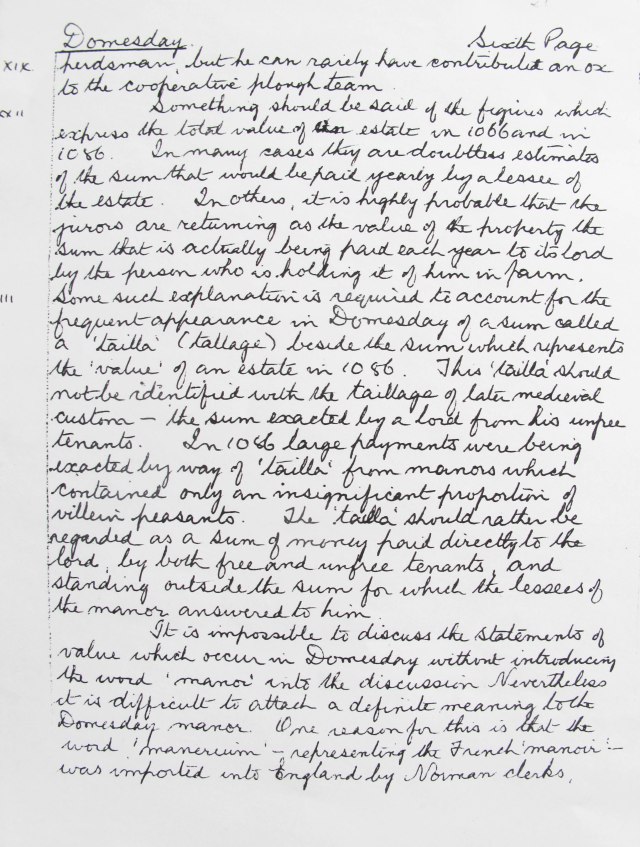 Domesday. Sixth Page
XIX herdsman, but he can rarely have contributed an ox
to the cooperative plough team.
XXII Something should be said of the figures which
express the total value of an estate in 1066 and in
1086. In many cases they are doubtless estimates
of the sum that would be paid yearly by a lessee of
the estate. In others, it is highly probable that the
jurors are returning as the value of the property the
sum that is actually being paid each year to its lord
by the person who is holding it of him in farm.
III Some such explanation is required to account for the
frequent appearance in Domesday of a sum called
a 'tailla' (tallage) beside the sum which represents
the 'value' of an estate in 1086. This 'tailla' should
not be identified with the taillage of later medieval
custom — the sum exacted by a lord from his unfree
tenants. In 1086 large payments were being
exacted by way of 'tailla' from manors which
contained only an insignificant proportion of
villein peasants. The 'tailla' should rather be
regarded as a sum of money paid directly to the
lord, by both free and unfree tenants, and
standing outside the sum for which the lessees of
the manor answered to him
It is impossible to discuss the statements of
value which occur in Domesday without introducing
the word 'manor' into the discussion Nevertheless
it is difficult to attach a definite meaning to the
Domesday manor. One reason for this is that the
word 'manerium' — representing the French 'manoir' —
was imported into England by Norman clerks,